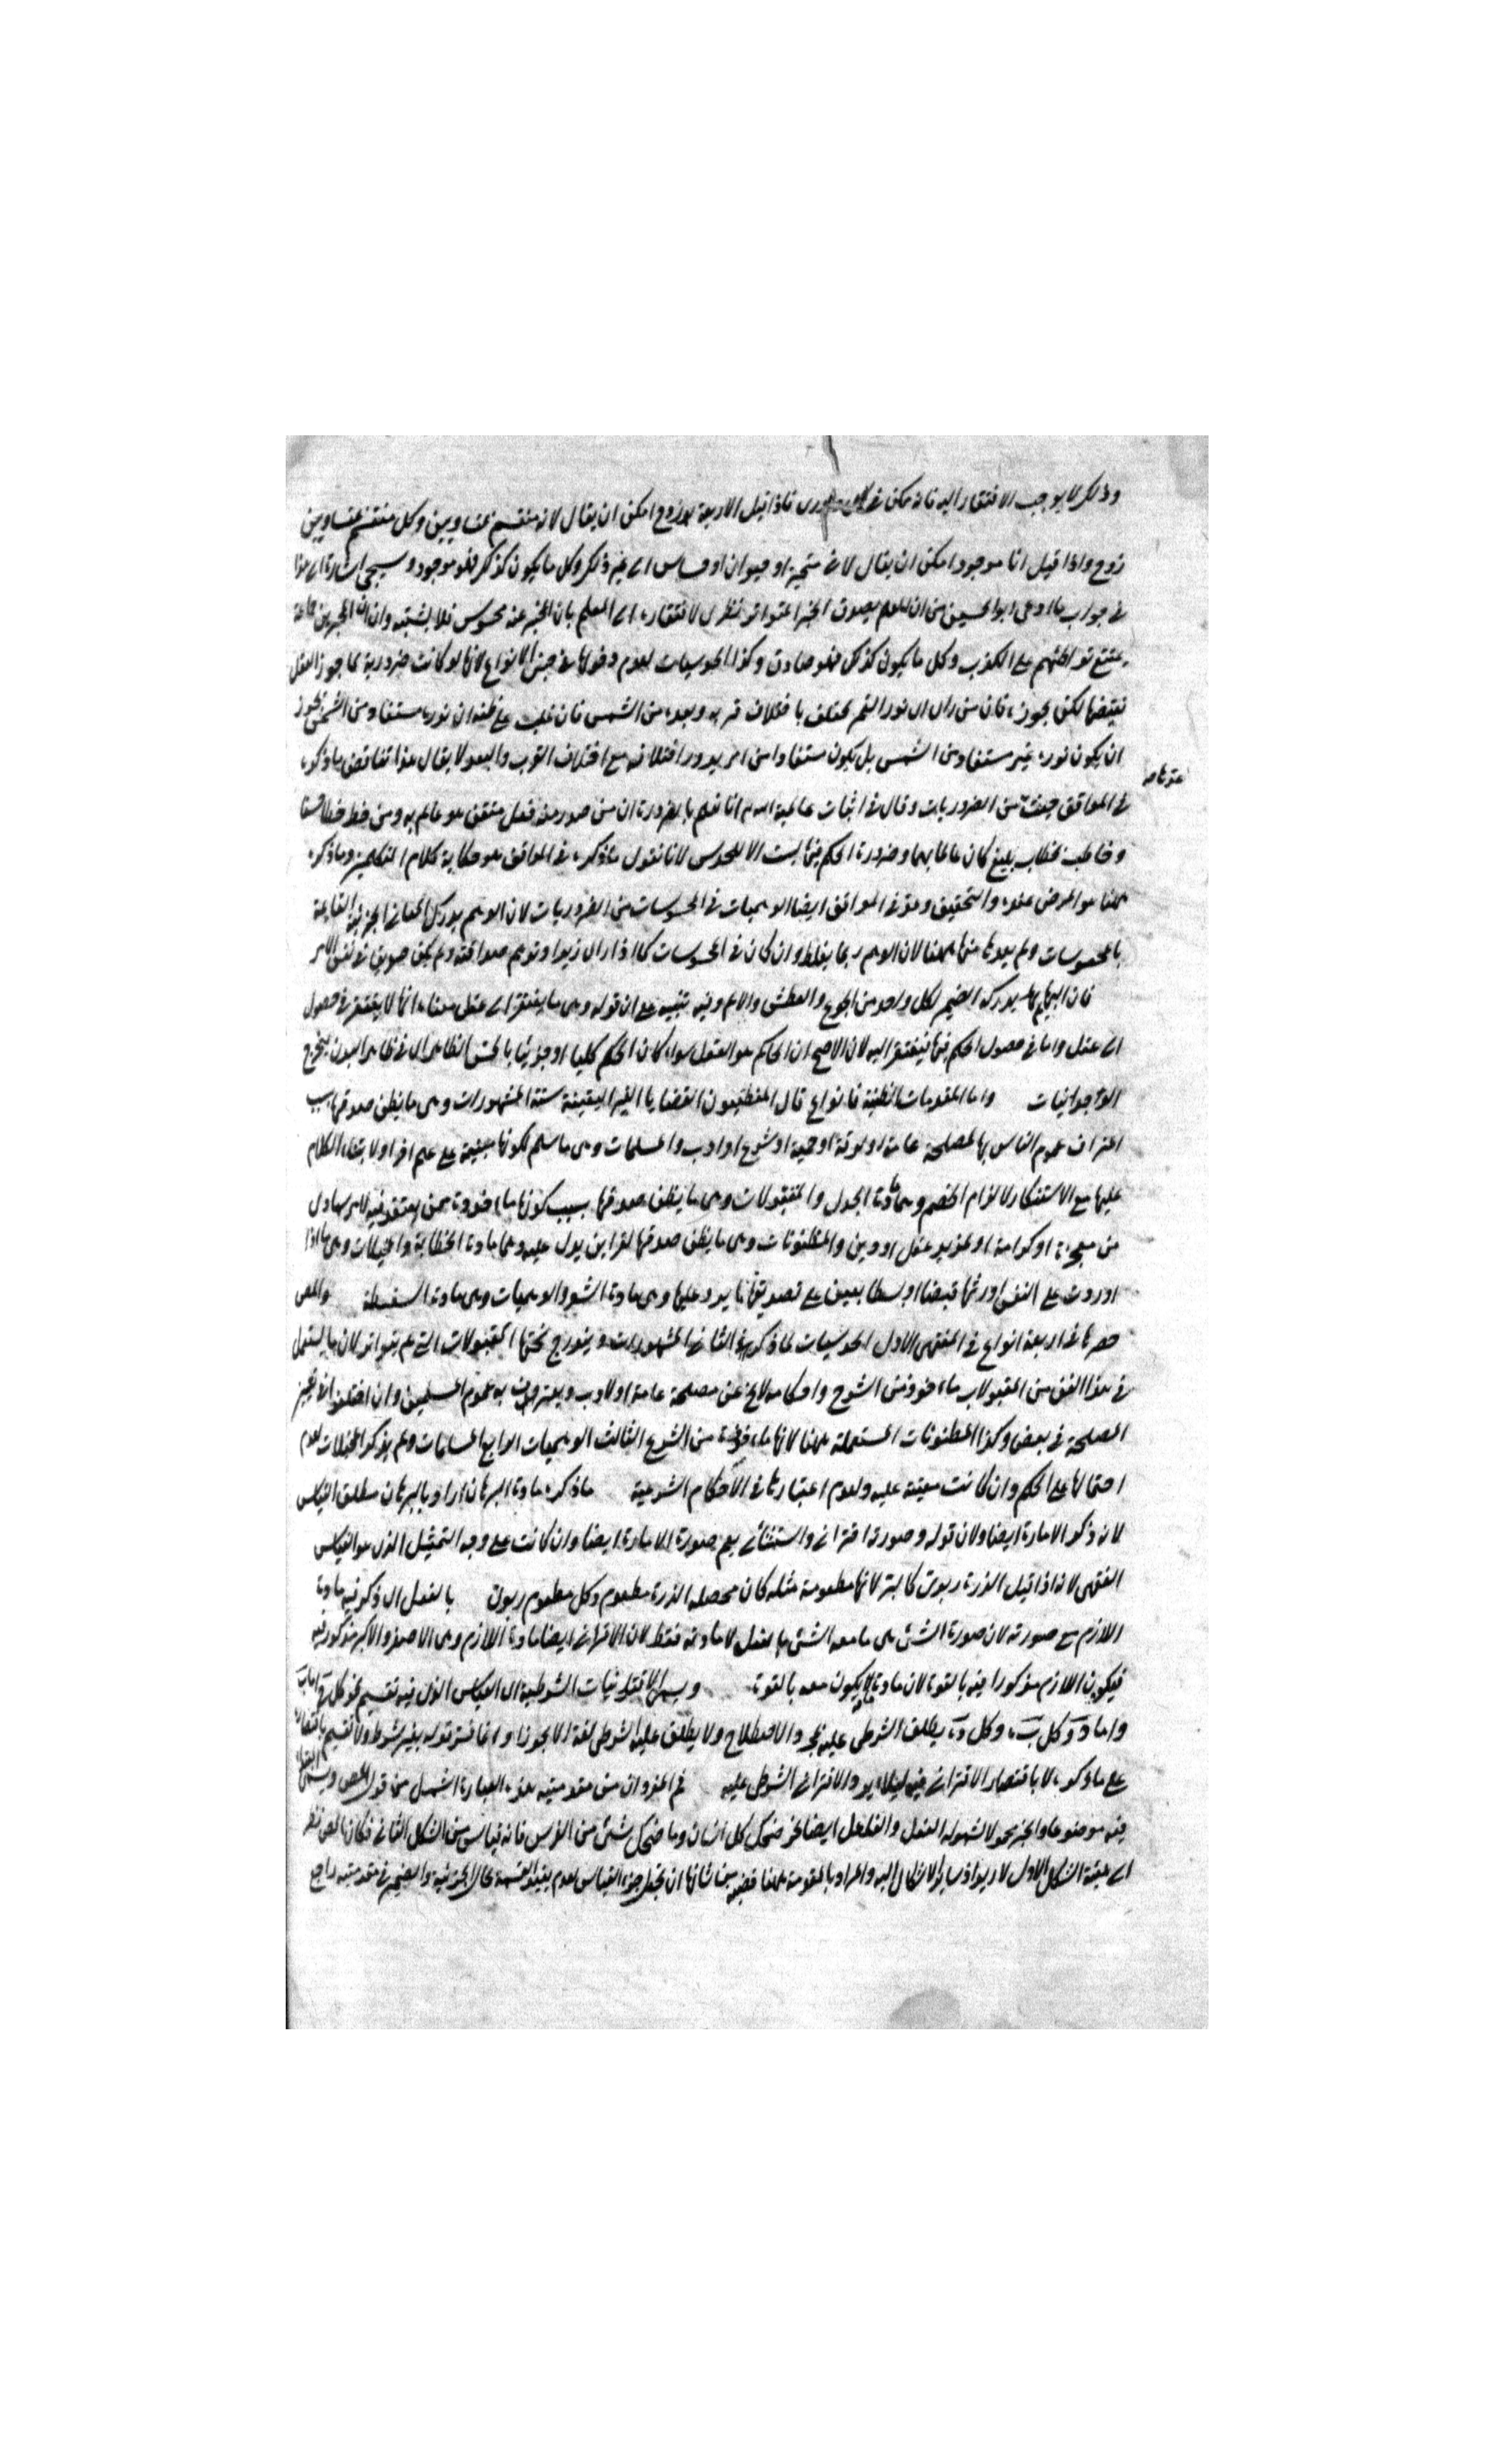 وذلك لا يوجب الافتقار اليه فانه يمكن في كل ضروري فاذا قيل الاربعة زوج امكن ان يقال لانه منقسم بمتساويين وكل منقسم بمتساويين
زوج واذا قيل انا موجود امكن ان يقال لاني متحيز او حيوان او حساس الى غير ذلك وكل ما يكون كذلك فهو موجود وسيجئ اشارة الى هذا
في جواب ما ادعى ابو الحسين من ان العلم بصدق الخبر المتواتر نظري لافتقاره الى العلم بان المخبر عنه محسوس فلا يشتبه وان المخبرين جماعة
يمتنع تواطئهم على الكذب وكل ما يكون كذلك فهو صادق وكذا الحدسيات لعدم دخولها في جنس الانواع لانها لو كانت ضرورية لما جوز العقل
نقيضها لكن يجوزه فان من راى ان نور القمر يختلف باختلاف قربه وبعده من الشمس فان غلب على ظنه ان نوره مستفاد من الشمس يجوز
ان يكون نوره غير مستفاد من الشمس بل يكون مستفادا من امر يدور اختلافه مع اختلاف القرب والبعد لا يقال هذا تناقض ما ذكره
في المواقف حيث من الضروريات وقال في اثبات عالمية الله انا نعلم بالضرورة ان من صدر منه فعل متقن هو عالم به ومن خط خطا حسنا
وخاطب بخطاب بليغ كان عالما بهما وضرورة الحكم فيها ليست الا للحدس لانا نقول ما ذكره في المواقف هو حكاية كلام المتكلمين وما ذكره
ههنا هو المرضي عنده والتحقيق وعد في المواقف ايضا الوهميات في المحسوسات من الضروريات لان الوهم يدرك المعاني الجزئية القائمة
بالمحسوسات ولم يعدها منها ههنا لان الوهم ربما يغلط وان كان في المحسوسات كما اذا راى زيدا وتوهم صداقته ولم يكن صديق في نفس الامر
فان البهائم يدركه الضمير لكل واحد من الجوع والعطش والالم وفيه تنبيه على ان قوله وهي ما يفتقر الى عقل معناه انها لا يفتقر في حصول
الى عقل واما في حصول الحكم فيها فيفتقر اليه لان الاصح ان الحاكم هو العقل سواء كان الحكم كليا او جزئيا بالحس الظاهر اى في ظاهر البدن يخرج
الوجدانيات واما المقدمات الظنية فانواع قال المنطقيون القضايا الغير اليقينية ستة المشهورات وهي ما يظن صدقها بسبب
اعتراف عموم الناس بها لمصلحة عامة او لرقة او حمية او شرع او ادب والمسلمات وهي ما سلم لكونها مبينة على علم اخر او لابتناء الكلام
عليها مع الاستنكار لالزام الخصم وهما مادتا الجدل والمقبولات وهي ما يظن صدقها بسبب كونها ماخوذة ممن يعتقد فيه لامر سماوى
من معجزة او كرامة او لمزيد عقل او دين والمظنونات وهي ما يظن صدقها لقراين يدل عليه وهما مادتا الخطابة والمخيلات وهي ما اذا
اوردت على النفس اورثها قبضا او بسطا يعين على تصديقها ما يرد عليها وهي مادة الشعر والوهميات وهي مادة السفسطة والمص
حصرها في اربعة انواع في المنتهى الاول الحدسيات لما ذكره الثاني المشهورات ويندرج تحتها المقبولات التي لم يتواتر لان ما يستعمل
في هذا الفن من المقبولات ماخوذ من الشرع واحكامه لا يخ عن مصلحة عامة او لادب ويعترف به عموم المسلمين وان اختلفوا في تعيين
المصلحة في بعض وكذا المظنونات المستعملة ههنا لانها ماخوذة من الشرع الثالث الوهميات الرابع المسلمات ولم يذكر المخيلات لعدم
احتمالها على الحكم وان كانت معينة عليه ولعدم اعتبارها في الاحكام الشرعية ما ذكره مادة البرهان اراد بالبرهان مطلق القياس
لانه ذكر الامارة ايضا ولان قوله وصورته اقتراني واستثنائي يعم صورة الامارة ايضا وان كانت على وجه التمثيل الذي هو القياس
الفقهي لانه اذا قيل الذرة ربوي كالبر لانها مطعومة مثله كان محصله الذرة مطعوم وكل مطعوم ربوي بالفعل اى ذكر فيه مادة
اللازم مع صورته لان صورة الشئ هي ما معه الشئ بالفعل لا مادته فقط لان الاقتراني ايضا مادة اللازم وهي الاصغر والاكبر مذكور فيه
فيكون اللازم مذكورا فيه بالقوة لان مادة الشئ يكون معه بالقوة ويسمى الاقترانيات الشرطية اى القياس الذي فيه تقسيم نحو كل ج اما ب
واما د وكل ب ه وكل د ه يطلق الشرطي عليه بمجرد الاصطلاح ولا يطلق عليه الشرطي لغة الا تجوزا وانما فسر قوله بغير شرط ولا تقسيم باقتصار
على ما ذكره لا باقتصار الاقتراني فيه لئلا يرد الاقتراني الشرطي عليه ثم المفردان من مقدمتيه هذه العبارة اشمل من قول المص ويسمى المبتدا
فيه موضوعا والخبر محمولا لشموله الفعل والفاعل ايضا نحو ضحك كل انسان وما ضحك شئ من الفرس فانه قياس من الشكل الثاني فكان المص نظر
الى هيئة الشكل الاول لا ارتداد سائر الاشكال اليه والمراد بالمقدمة ههنا قضية من شانها ان تجعل جزء القياس لعدم تقييد القسمة بحال الجزئية والضمير في مقدمتيه راجع